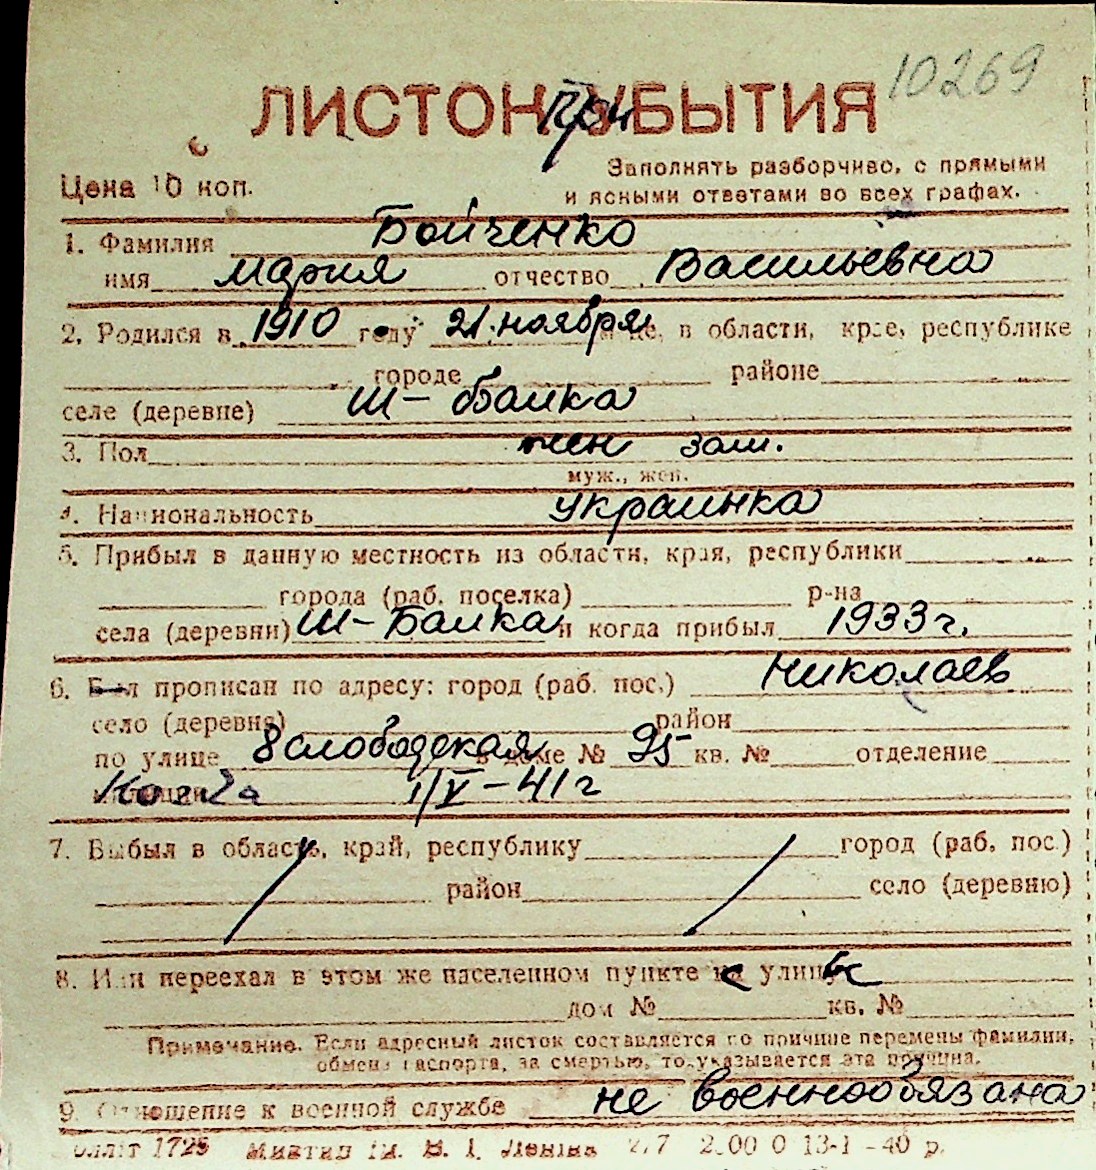 10269
ЛИСТОК УБЫТИЯ
При
Цена 10 коп.
Заполнять разборчиво, с прямыми
и ясными ответами во всех графах.
1. Фамилия Бойченко
имя Мария отчество Васильевна
2. Родился в 1910 году 21 ноября м-це, в области, крае, республике
городе районе
селе (деревне) Ш-Балка
3. Пол жен зам.
муж., жен.
4. Национальность украинка
5. Прибыл в данную местность из области, края, республики
города (раб. поселка) р-на
села (деревни) Ш-Балка и когда прибыл 1933 г.
6. Был прописан по адресу: город (раб. пос.) Николаев
село (деревня) район
по улице 8 слободская в доме № 95 кв. № отделение
милиции Когда 1/V-41 г
7. Выбыл в область, край, республику город (раб. пос.)
район село (деревню)
8. Или переехал в этом же населенном пункте с улицы
дом № кв. №
Примечание. Если адресный листок составляется по причине перемены фамилии,
обмена паспорта, за смертью, то указывается эта причина.
9. Отношение к военной службе не военнообязана
1725 Ім. В. І. Леніна 2.00 0 13-1-40 р.